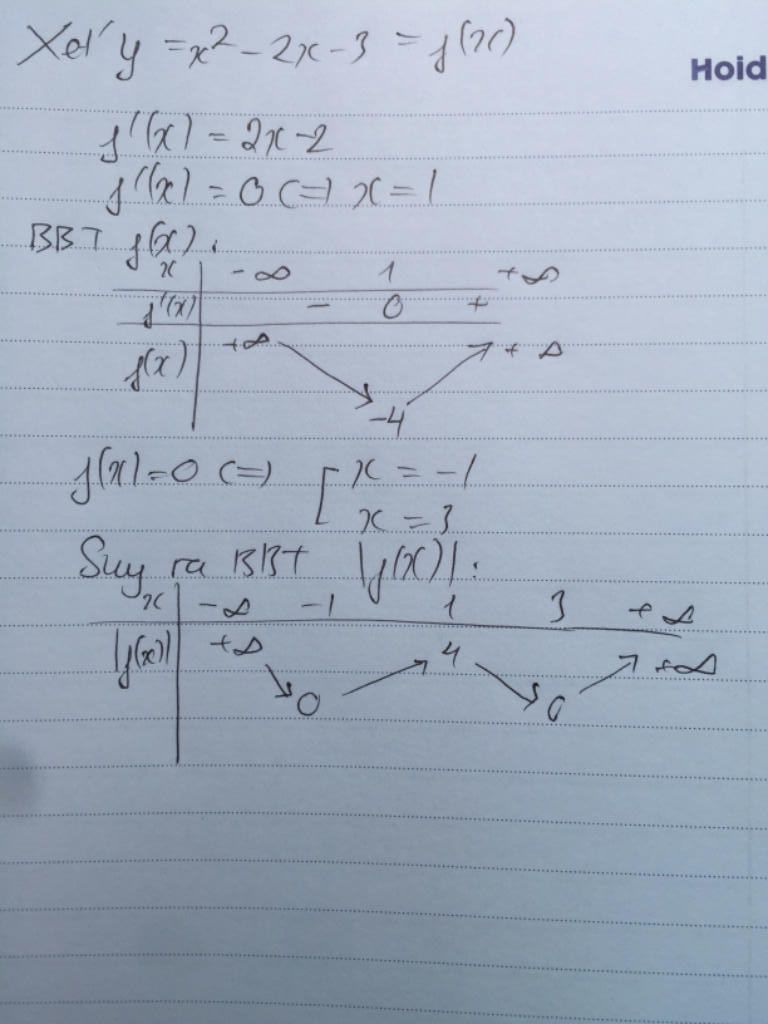 Xét y = x² - 2x - 3 = f(x)
Hoid
f'(x) = 2x - 2
f'(x) = 0 <=> x = 1
BBT f(x):
x -∞ 1 +∞
f'(x) - 0 +
f(x) +∞ ↘ -4 ↗ +∞
f(x) = 0 <=> [ x = -1
x = 3
Suy ra BBT |f(x)|:
x -∞ -1 1 3 +∞
|f(x)| +∞ ↘ 0 ↗ 4 ↘ 0 ↗ +∞